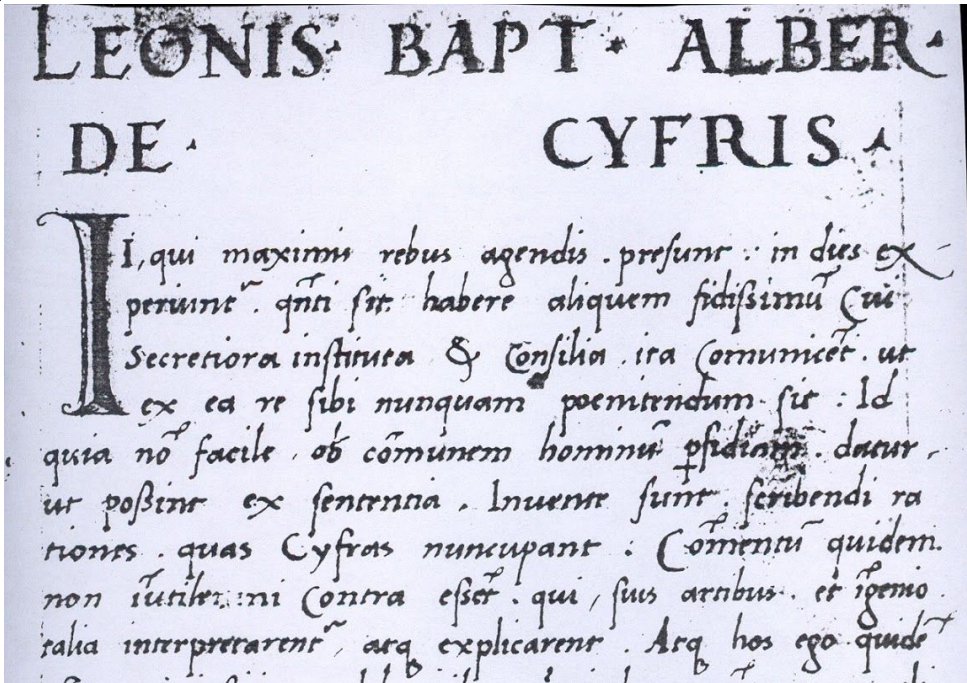 LEONIS · BAPT · ALBER ·
DE · CYFRIS ·
II, qui maximis rebus agendis . presunt : in dies ex
periunt᷑ . qn̄ti sit habere aliquem fidissimū Cui
Secretiora instituta & Consilia ita Comunicēt . ut
ex ea re sibi nunquam poenitendum sit : Id
quia nō facile ob cōmunem hominū ꝑfidiam . datur ,
ut possint ex sententia . Invente sunt . scribendi ra
tiones . quas Cyfras nuncupant : Cōmentū quidem
non iūtile : ni Contra essēt . qui , suis artibus . et īgenio
talia interpretarent᷑ , atq explicarent . Atq hos ego quidē